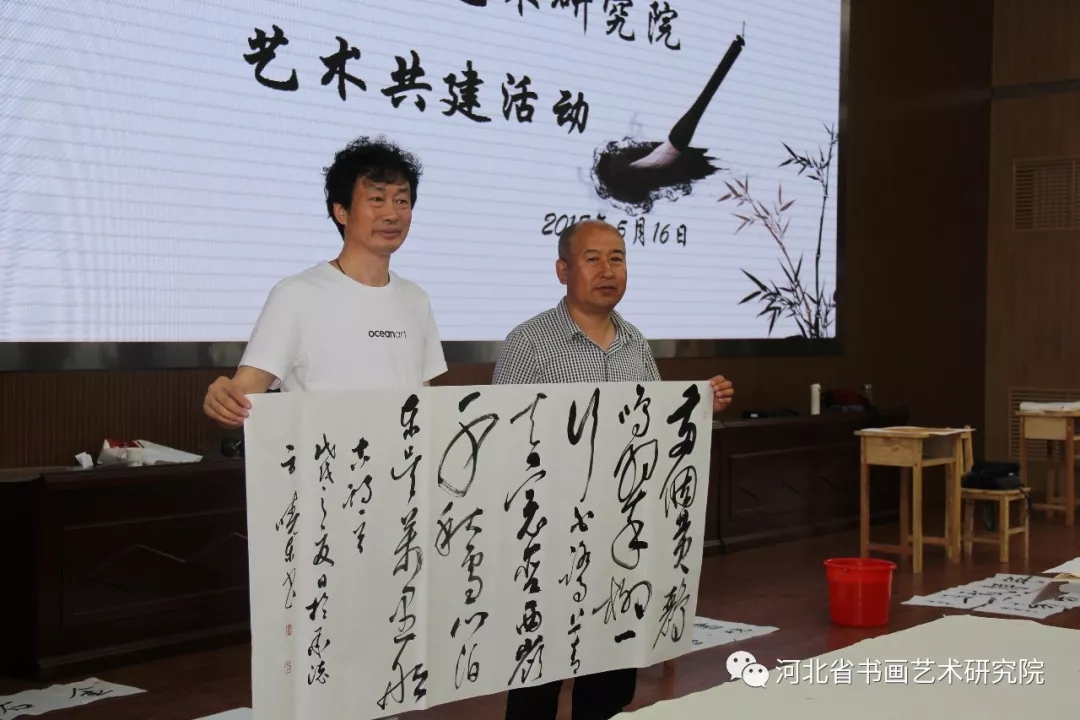 术研究院
艺术共建活动
5月16日
oceanart
两個黄鹂
鸣翠柳一
行白鹭上青
天窗含西岭
千秋雪门泊
东吴萬里船
古诗一首
戊戌之夏日於承德
晓东书
河北省书画艺术研究院